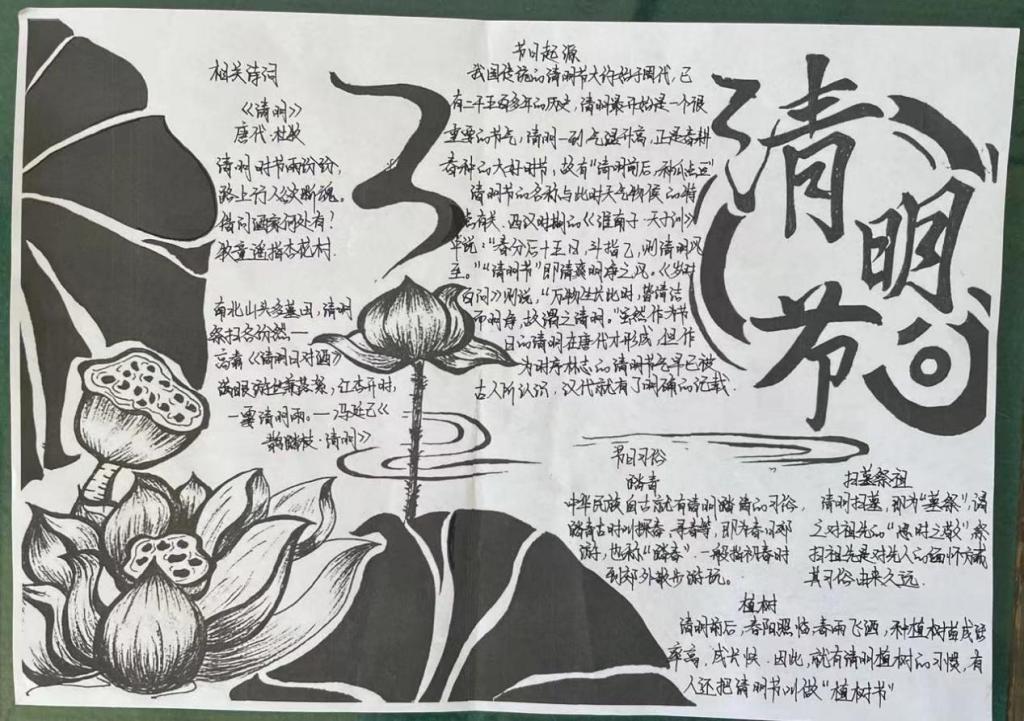 清明节
相关诗词
《清明》
唐代·杜牧
清明时节雨纷纷,
路上行人欲断魂。
借问酒家何处有?
牧童遥指杏花村.
南北山头多墓田,清明
祭扫各纷然.—
高翥《清明日对酒》
满眼游丝兼落絮,红杏开时,
一霎清明雨。—冯延己《
鹊踏枝·清明》
节日起源
我国传统的清明节大约始于周代,已
有二千五百多年的历史,清明最开始是一个很
重要的节气,清明一到气温升高,正是春耕
春种的大好时节,故有“清明前后,种瓜点豆”
清明节的名称与此时天气物候的特
点有关.西汉时期的《淮南子·天文训》
中说:“春分后十五日,斗指乙,则清明风
至。”“清明节”即清爽明净之风。《岁时
百问》则说,“万物生长此时,皆清洁
而明净,故谓之清明。”虽然作为节
日的清明在唐代才形成,但作
为时序标志的清明节气早已被
古人所认识,汉代就有了明确的记载.
节日习俗
踏青
中华民族自古就有清明踏青的习俗,
踏青古时叫探春、寻春等,即为春日郊
游,也称“踏春”一般指初春时
到郊外散步游玩。
扫墓祭祖
清明扫墓,即为“墓祭”,谓
之对祖先的“思时之敬”祭
扫祖先是对先人的缅怀
其习俗由来久远.
植树
清明前后,春阳照临,春雨飞洒,种植树苗成活
率高,成长快.因此,就有清明植树的习惯,有
人还把清明节叫做“植树节”